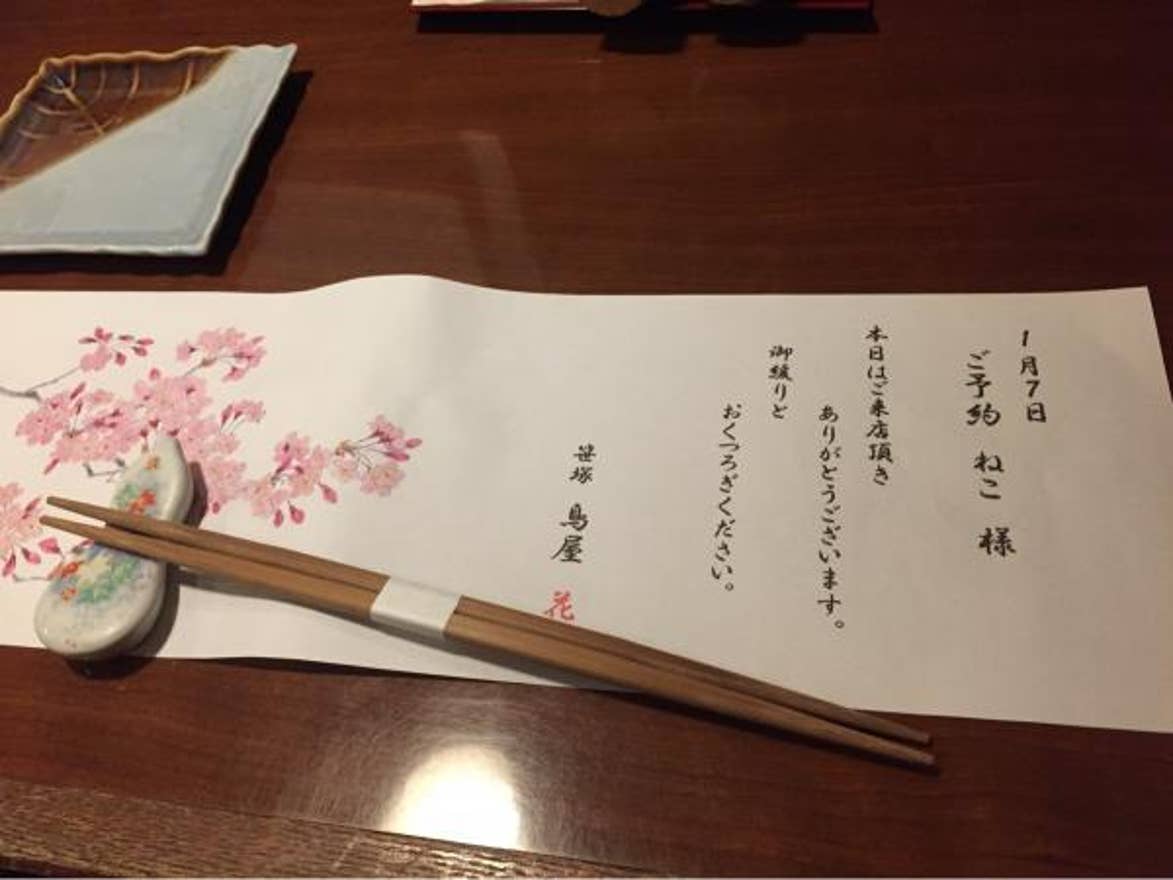 1月7日
ご予約 ねこ 様
本日はご来店頂き
ありがとうございます。
御緩りと
おくつろぎください。
笹塚 鳥屋 花